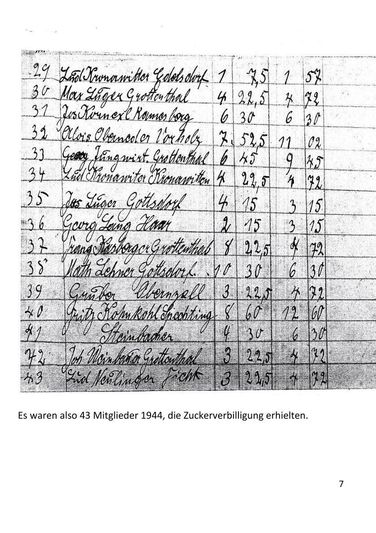 29 Lud Kronawitter Gdelsdorf 1 7,5 1 57
30 Max Lüger Grottenthal 4 22,5 4 72
31 Jos Kornexl Ramesberg 6 30 6 30
32 Alois Oberneder Vorholz 7 52,5 11 02
33 Georg Jungwirt Grottenthal 6 45 9 45
34 Lud Kronawiter Kronawitten 4 22,5 4 72
35 Jos Lüger Gottsdorf 4 15 3 15
36 Georg Lang Haar 2 15 3 15
37 Franz Kasberger Grottenthal 8 22,5 4 72
38 Math Lehner Gottsdorf 10 30 6 30
39 Gruber Obernzell 3 22,5 4 72
40 Fritz Kohnkohl 8 60 12 60
41 Steinbacher 4 30 6 30
42 Jos Grottenthal 3 22,5 4 72
43 Lud Neulinger 3 22,5 4 72
Es waren also 43 Mitglieder 1944, die Zuckerverbilligung erhielten.
7